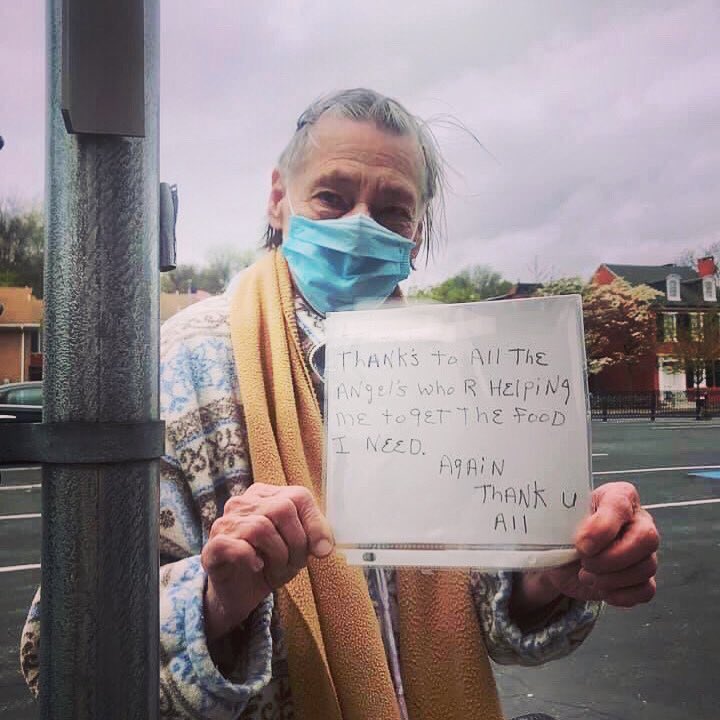 THANK'S to All THE
ANgel's who R HElPiNg
me to get THE FOOD
I NEED.
AgAiN
THANK U
All